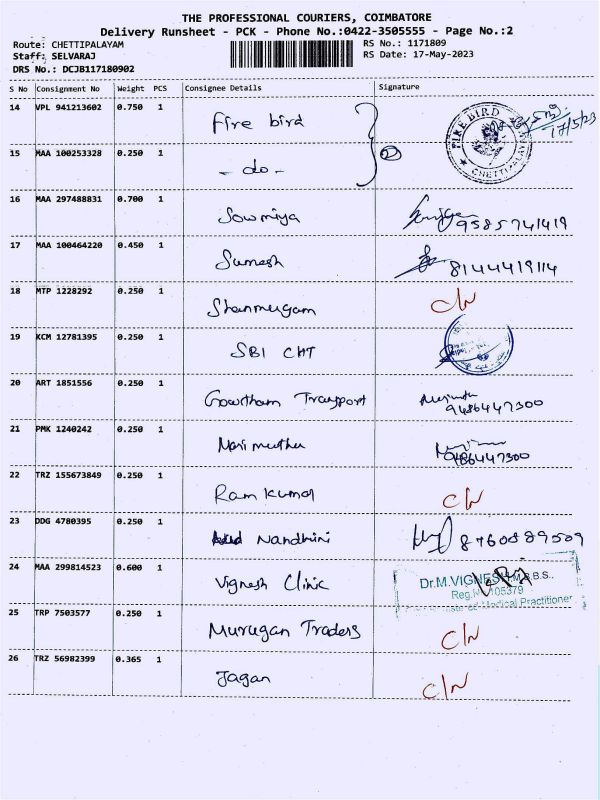 THE PROFESSIONAL COURIERS, COIMBATORE
Delivery Runsheet - PCK - Phone No.:0422-3505555 - Page No.:2
Route: CHETTIPALAYAM
RS No.: 1171809
Staff: SELVARAJ
RS Date: 17-May-2023
DRS No.: DCJB117180902
S No Consignment No Weight PCS Consignee Details Signature
14 VPL 941213602 0.750 1 Fire bird
FIRE BIRD CHETTIPALAYAM
17/5/23
15 MAA 100253328 0.250 1 - do - 2
16 MAA 297488831 0.700 1 Sowmiya 9585741419
17 MAA 100464220 0.450 1 Sumesh 8144419114
18 MTP 1228292 0.250 1 Shanmugam C/N
19 KCM 12781395 0.250 1 SBI CHT
20 ART 1851556 0.250 1 Gowtham Transport 9486447300
21 PMK 1240242 0.250 1 Mari muthu 9486447300
22 TRZ 155673849 0.250 1 Ram kumar C/N
23 DDG 4780395 0.250 1 Nandhini 8760889509
24 MAA 299814523 0.600 1 Vignesh Clinic
Dr.M.VIGNESH,M.B.B.S.,
Reg.No 105379
Medical Practitioner
25 TRP 7503577 0.250 1 Murugan Traders C/N
26 TRZ 56982399 0.365 1 Jagan C/N